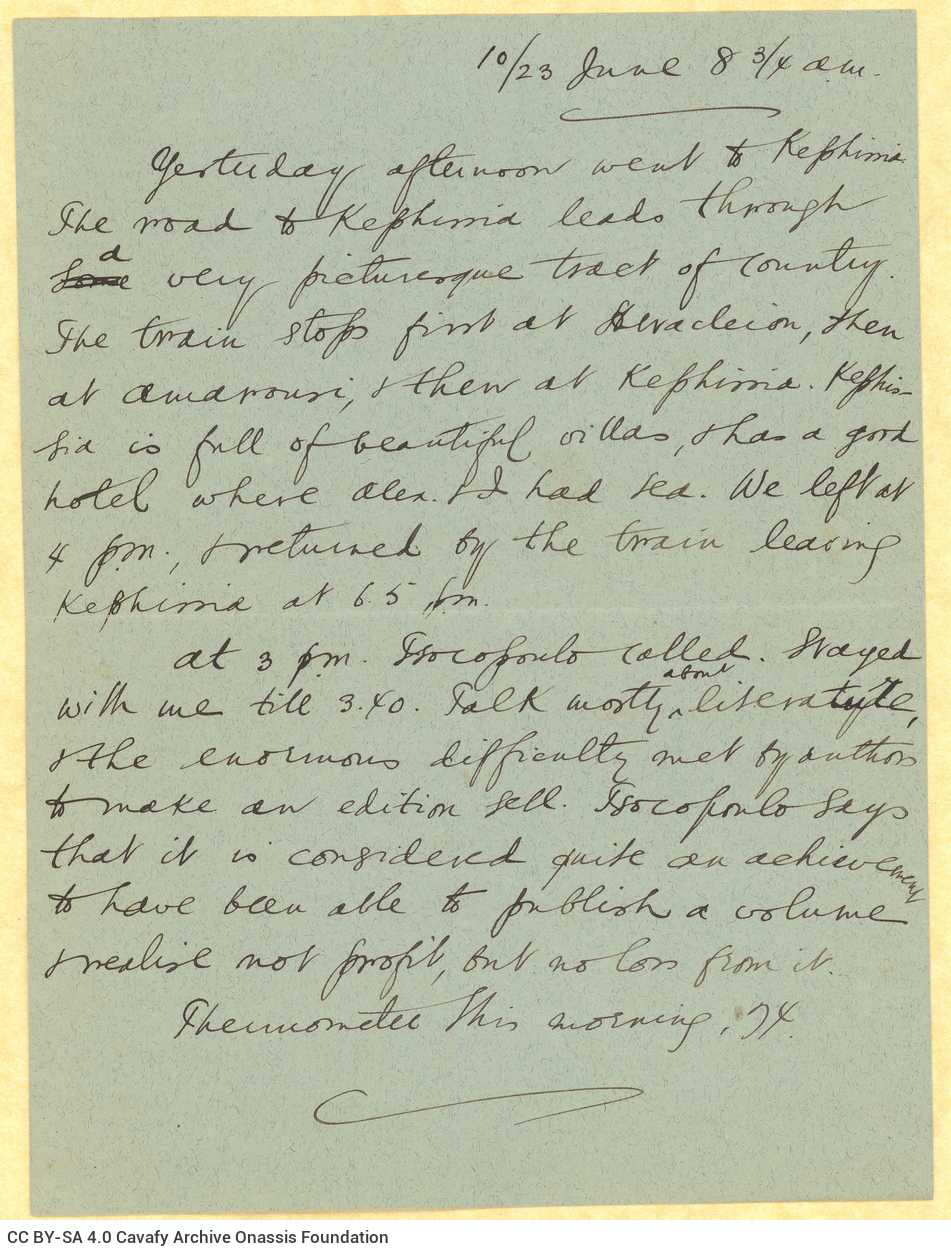 10/23 June 8 3/4 a.m.
Yesterday afternoon went to Kephissia.
The road to Kephissia leads through
a
Some very picturesque tract of country.
The train stops first at Heracleion, then
at Amaroussi, & then at Kephissia. Kephis-
sia is full of beautiful villas, & has a good
hotel where Alex. & I had tea. We left at
4 p.m., & returned by the train leaving
Kephissia at 6.5 p.m.
At 3 p.m. Tsocopoulo called. Stayed
about
with me till 3.40. Talk mostly literature,
& the enormous difficulty met by authors
to make an edition sell. Tsocopoulo says
that it is considered quite an achievement
to have been able to publish a volume
& realise not profit, but no loss from it.
Thermometer this morning, 74.
CC BY-SA 4.0 Cavafy Archive Onassis Foundation